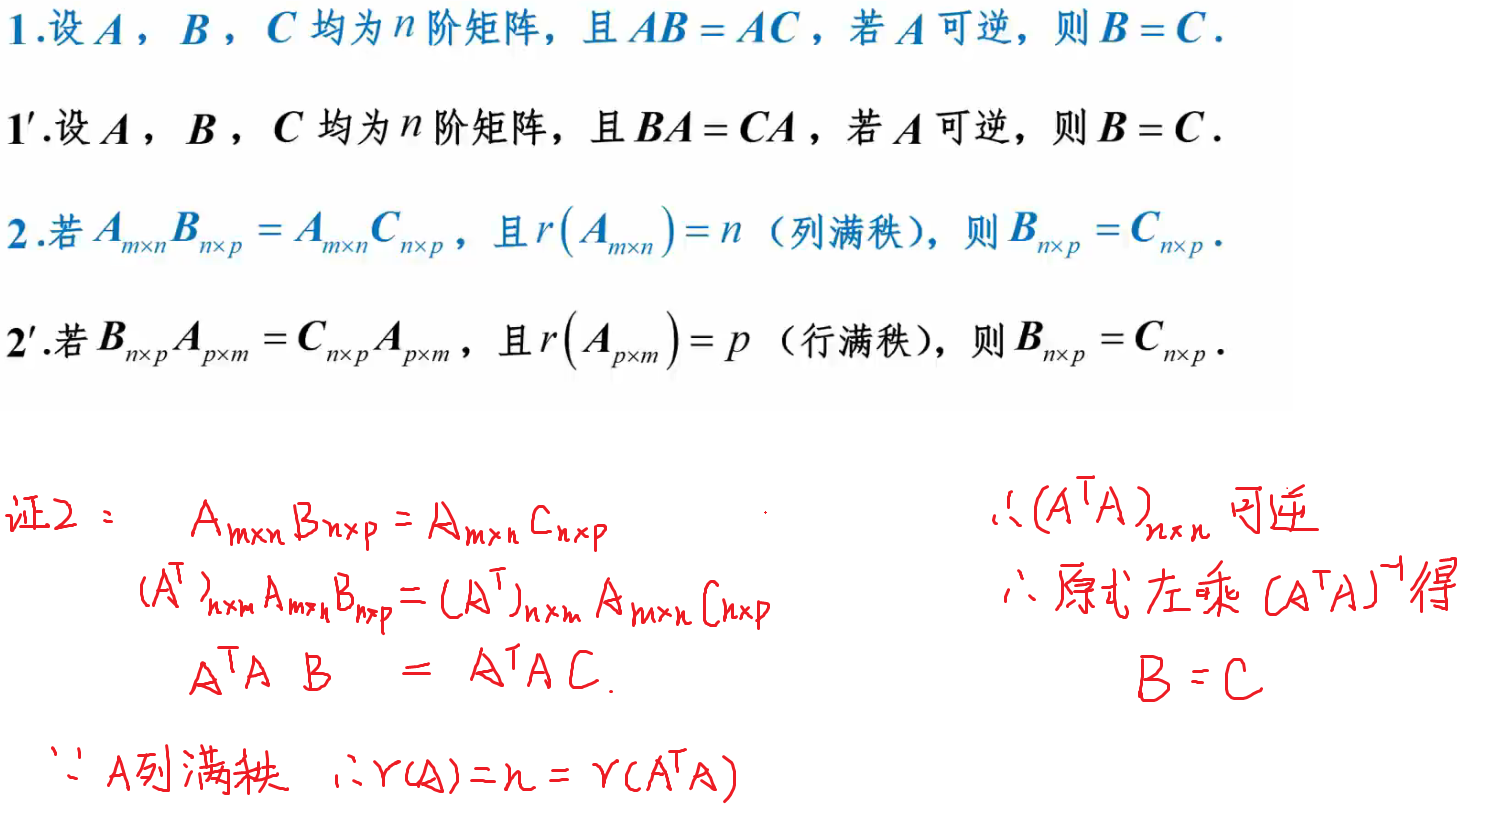 1.设 A， B， C 均为 n 阶矩阵，且 AB = AC，若 A 可逆，则 B = C.
1′.设 A， B， C 均为 n 阶矩阵，且 BA = CA，若 A 可逆，则 B = C.
2.若 Aₘ×ₙBₙ×ₚ = Aₘ×ₙCₙ×ₚ，且 r(Aₘ×ₙ) = n（列满秩），则 Bₙ×ₚ = Cₙ×ₚ.
2′.若 Bₙ×ₚAₚ×ₘ = Cₙ×ₚAₚ×ₘ，且 r(Aₚ×ₘ) = p（行满秩），则 Bₙ×ₚ = Cₙ×ₚ.
证2： Aₘ×ₙBₙ×ₚ = Aₘ×ₙCₙ×ₚ
(Aᵀ)ₙ×ₘAₘ×ₙBₙ×ₚ = (Aᵀ)ₙ×ₘAₘ×ₙCₙ×ₚ
AᵀA B = AᵀA C.
∵ A列满秩 ∴ r(A) = n = r(AᵀA)
∴ (AᵀA)ₙ×ₙ 可逆
∴ 原式左乘 (AᵀA)⁻¹ 得
B = C